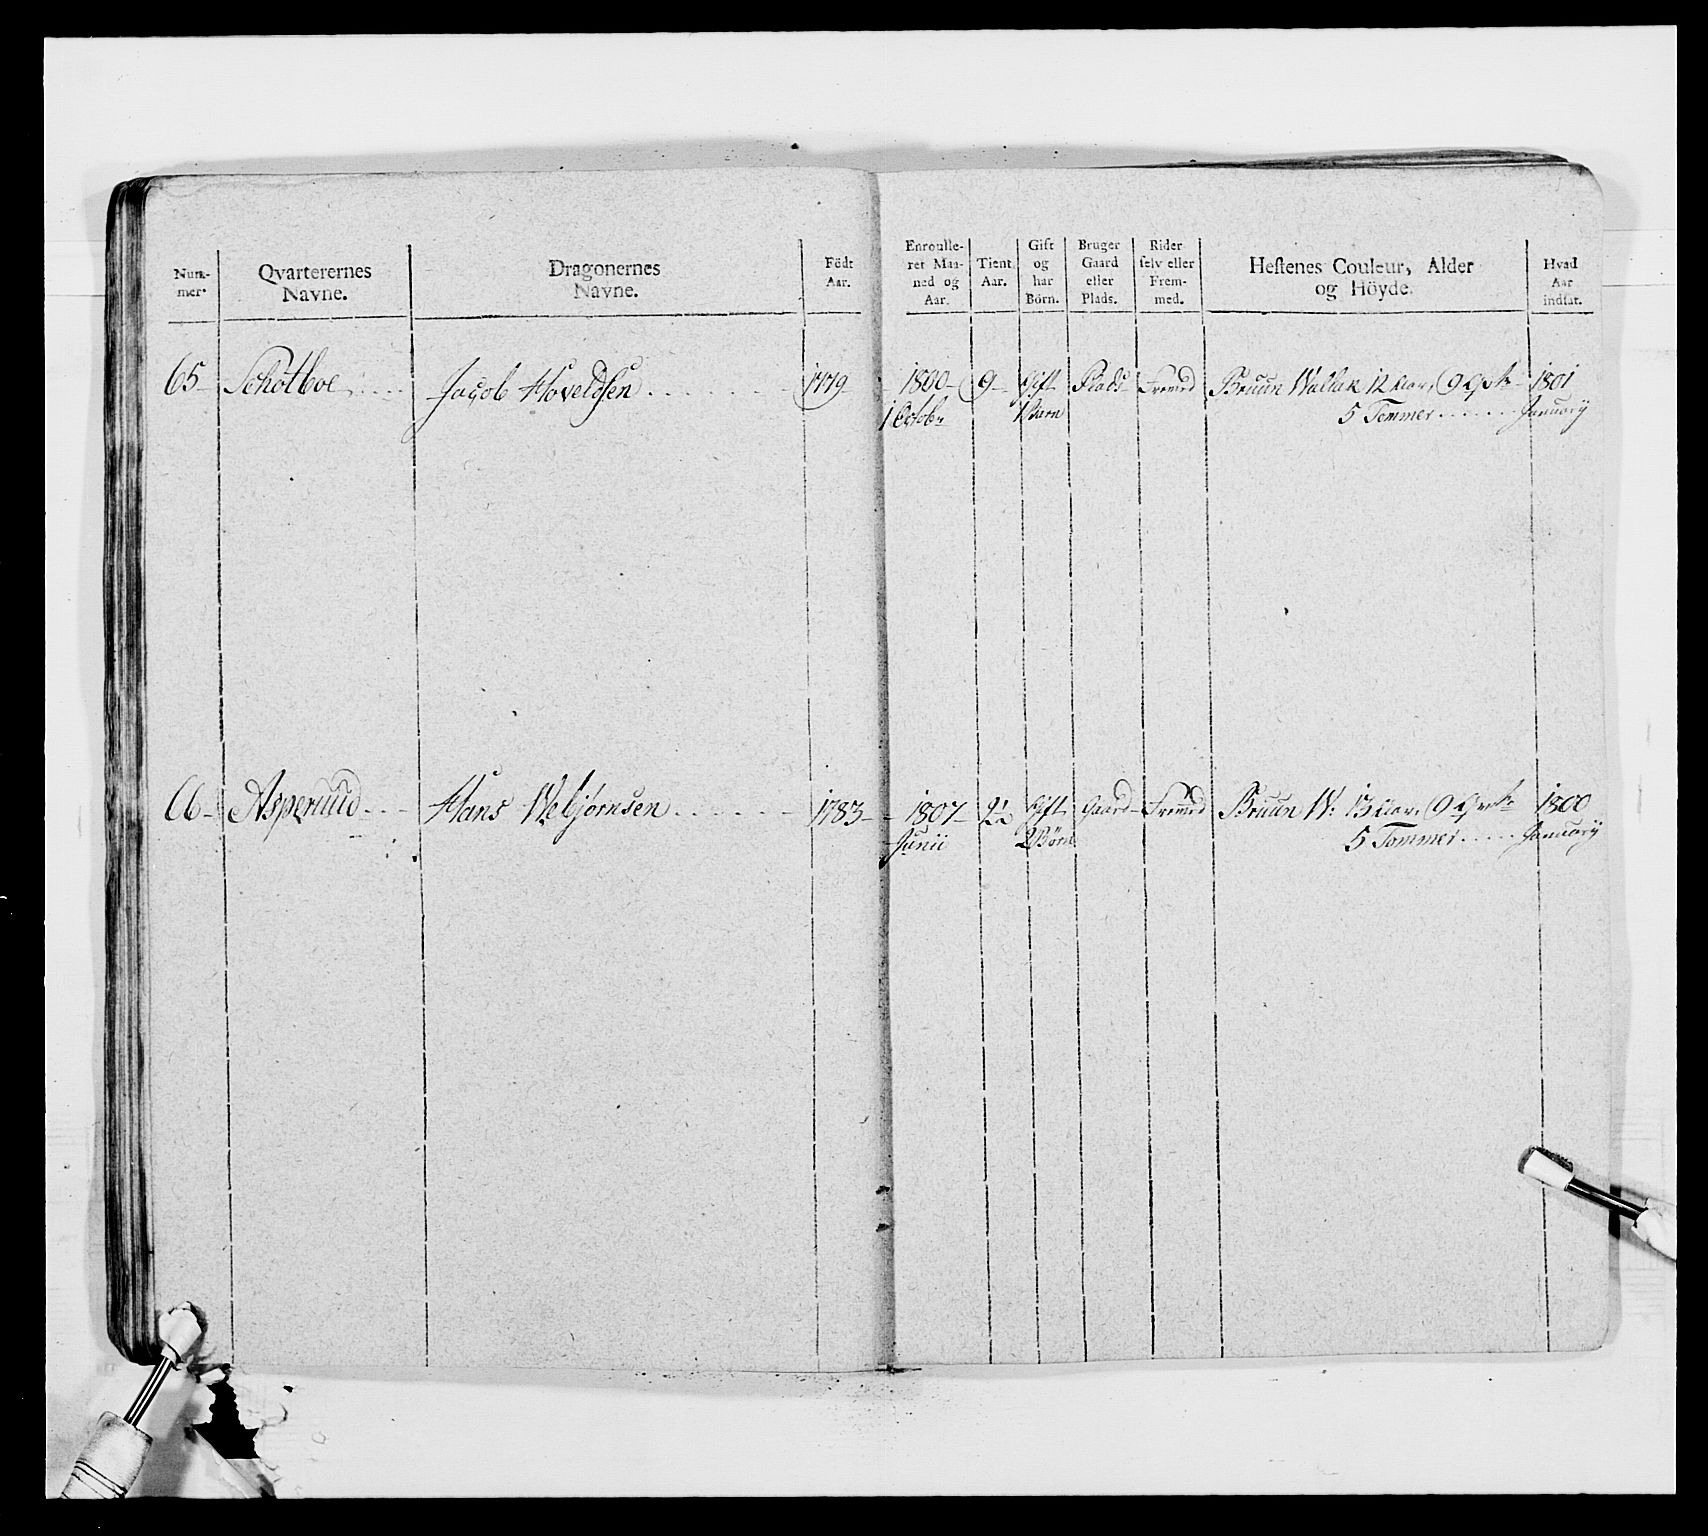 Num-
mer.
Qvarterernes
Navne.
Dragonernes
Navne.
Födt
Aar.
Enroulle-
ret Maa-
ned og
Aar.
Tient
Aar.
Gift
og
har
Börn.
Bruger
Gaard
eller
Plads.
Rider
selv eller
Frem-
med.
Hestenes Couleur, Alder
og Höyde.
Hvad
Aar
indsat.
65 Schotboe Jacob Hoveldsen 1779 1800 9 Gift Plads Fremd Bruun Wallak 12 Aar, 9 1801
1 Octobr 1 Barn 5 Tommer January
66 Asperuud Hans Webjørnsen 1783 1807 2½ Gift Gaard Fremd Bruun W: 13 Aar, 9 Qvrt: 1800
Junii 2 Børn 5 Tommer January